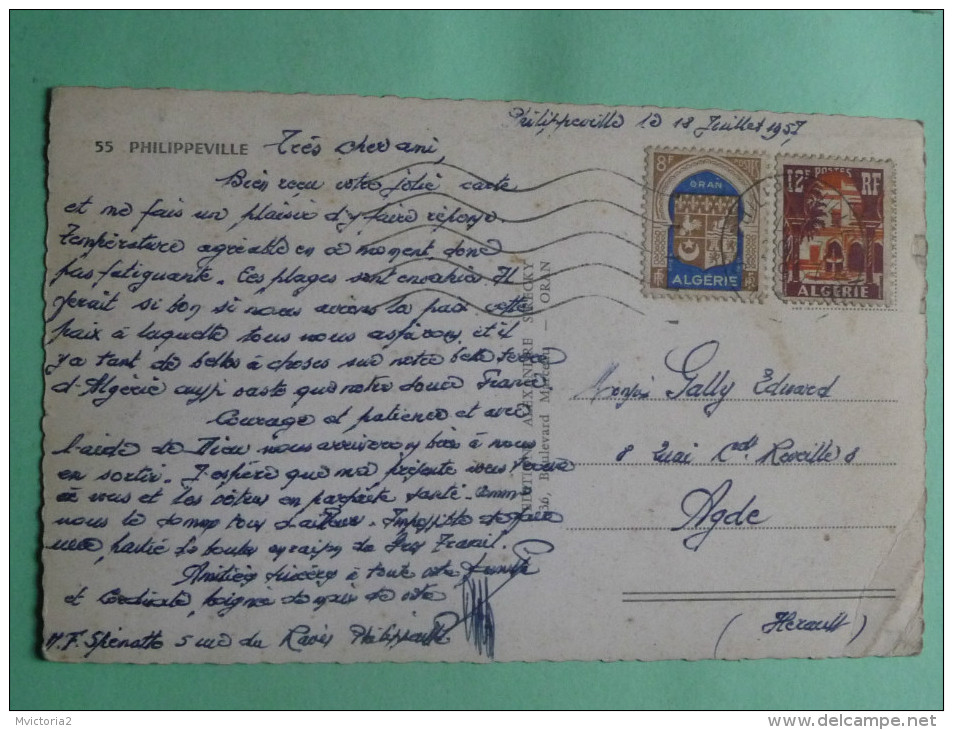 Philippeville le 18 Juillet 1957
55 PHILIPPEVILLE
Très cher ami,
Bien reçu votre jolie carte
et me fais un plaisir d'y faire réponse.
Température agréable en ce moment donc
pas fatiguante. Les plages sont envahies. Il
ferait si bon si nous avions la paix cette
paix à laquelle tous nous aspirons, et il
y a tant de belles choses sur notre belle terre
d'Algérie aussi vaste que notre douce France
Courage et patience et avec
l'aide de Dieu nous arriverons bien à nous
en sortir. J'espère que ma présente vous trouve
et les vôtres en parfaite santé. Comme
nous le sommes tous d'ailleurs. Impossible de
en raison de travail.
Amitiés sincères à toute votre famille
et Cordiale poignée de main de votre
M. F. Spénatto 5 rue du Philippeville
EDITIONS ALEXANDRE
36, Boulevard — ORAN
8F POSTES
ORAN
ALGÉRIE
12F POSTES RF
ALGÉRIE
Monsieur Gally Edward
8 Quai Cdt. Réveille 8
Agde
(Herault)
© Mvictoria2
http://www.delcampe.net